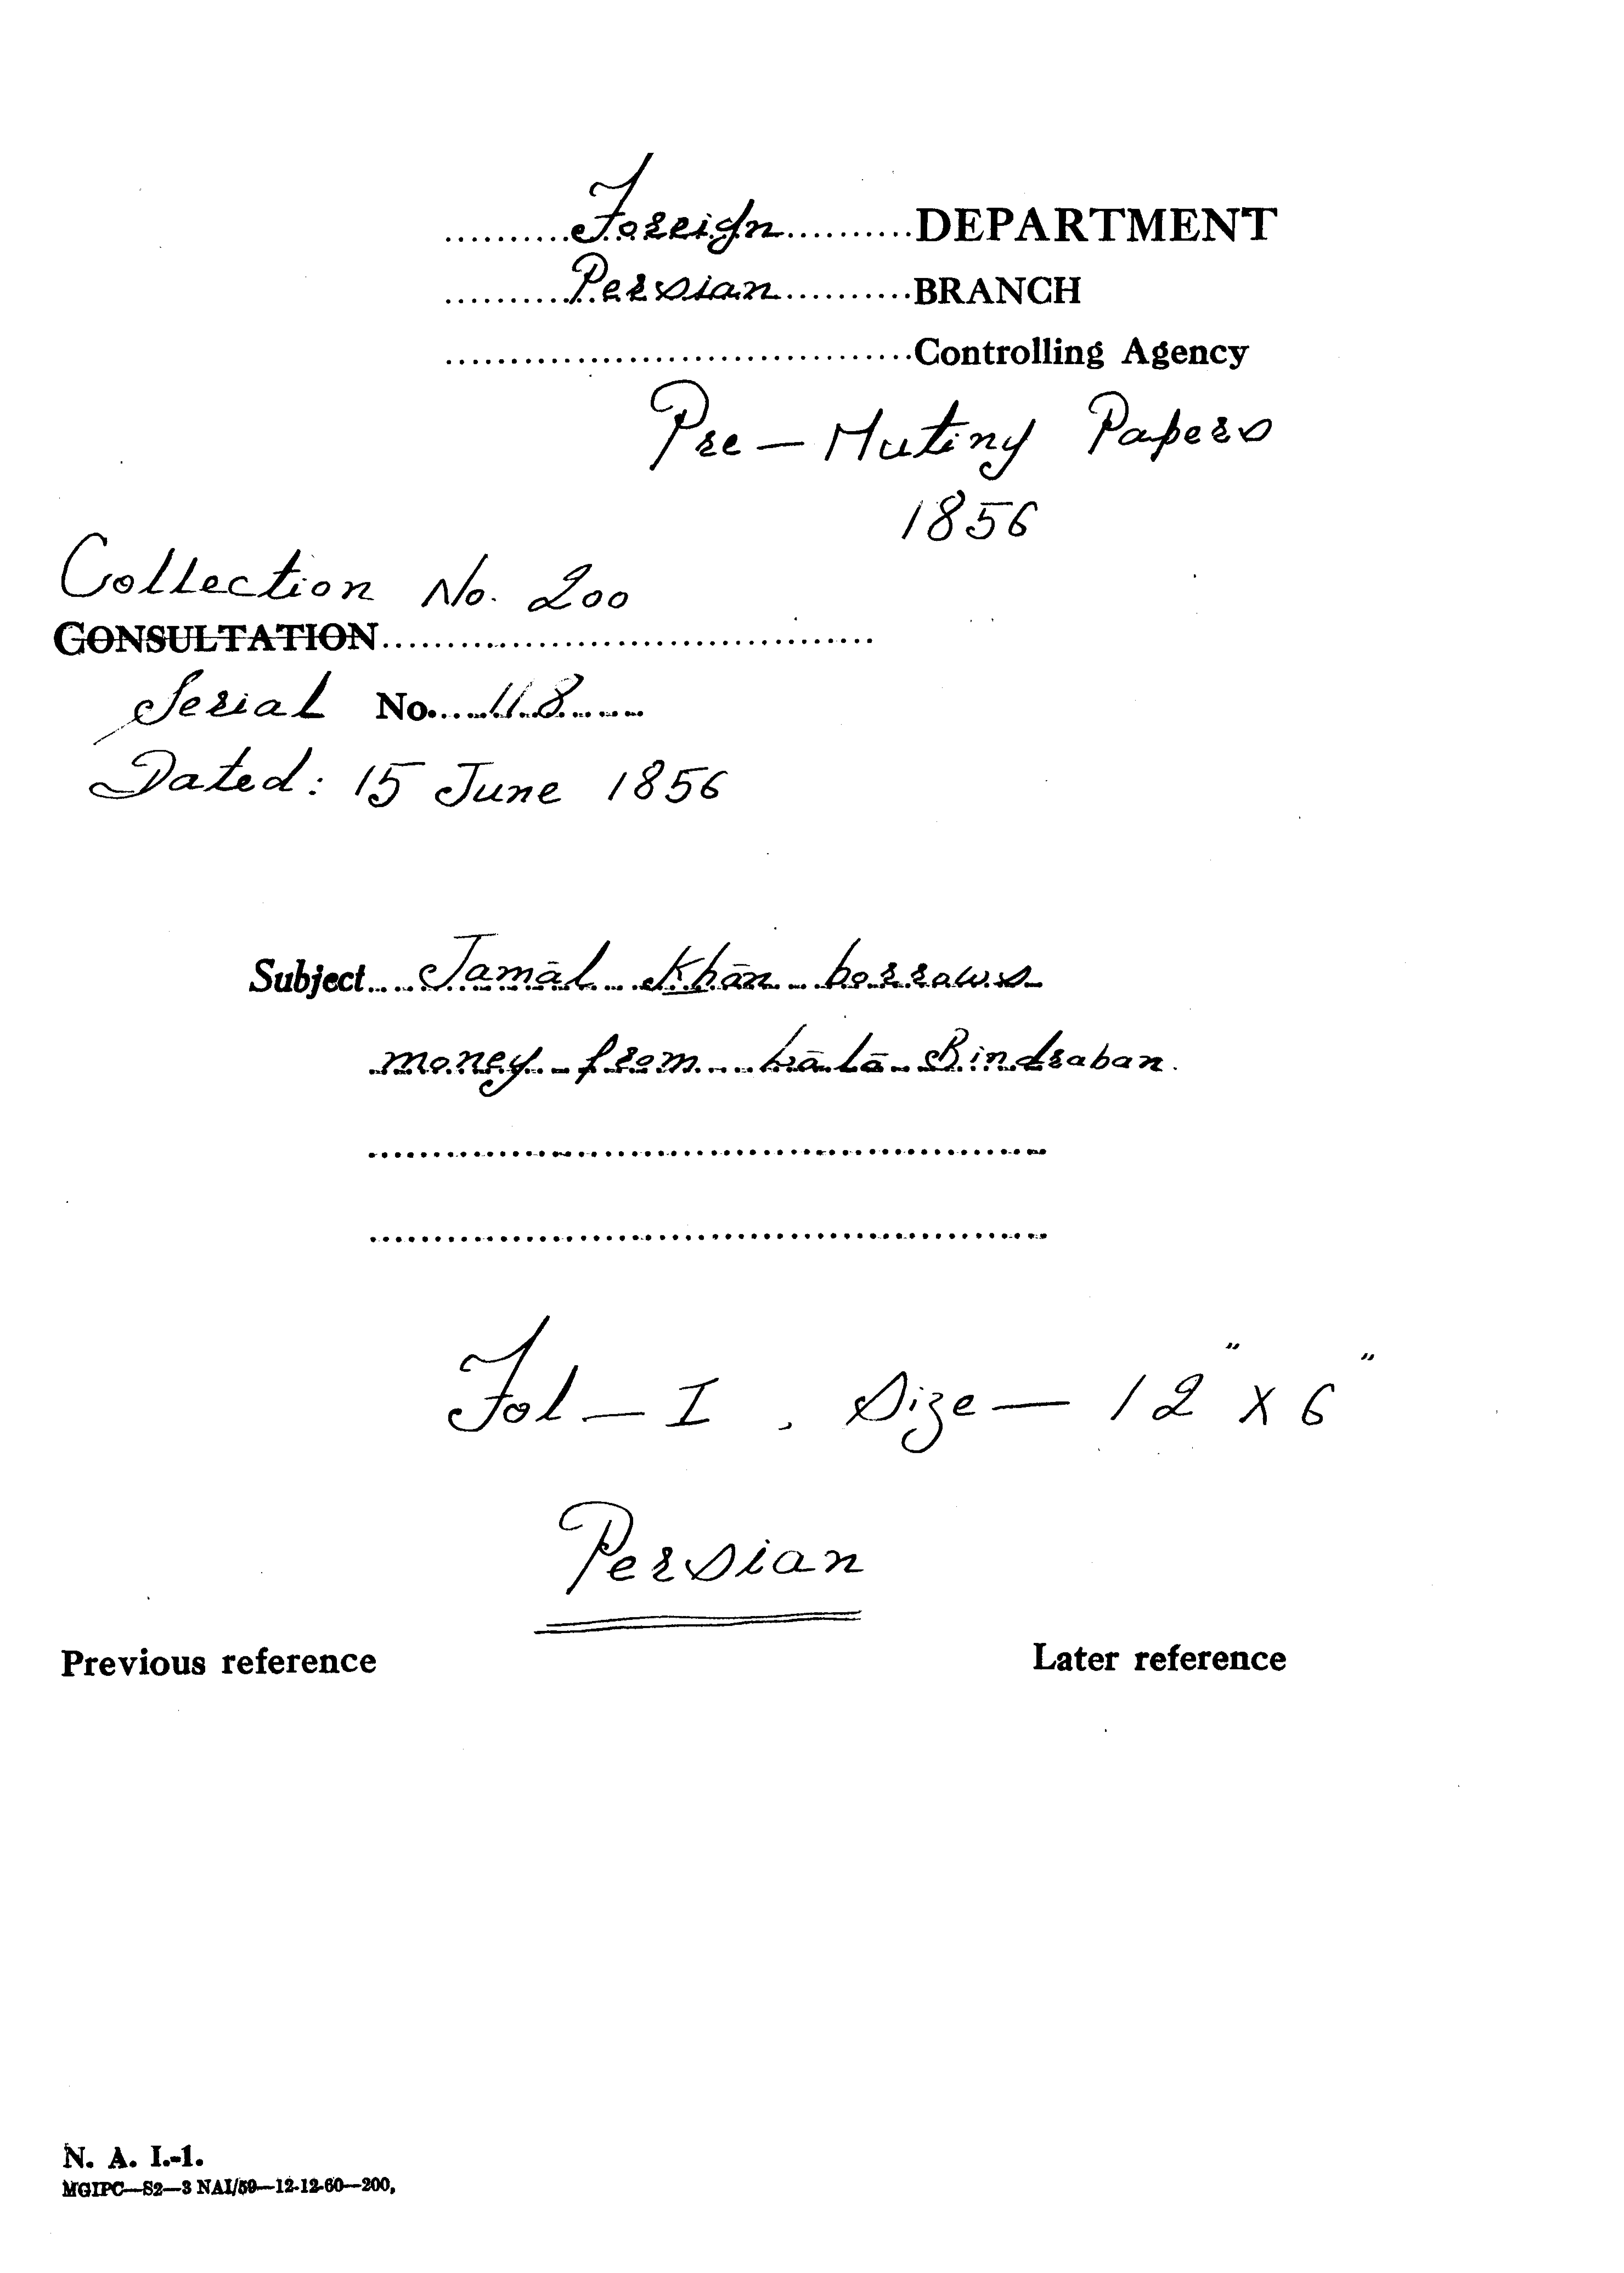 Foreign DEPARTMENT
Persian BRANCH
Controlling Agency
Pre-Mutiny Papers
1856
Collection No. 200
CONSULTATION
Serial No. 118
Dated: 15 June 1856
Subject Jamāl Khān borrows
money from Lālā Bindraban.
Fol-I, Size-12" X 6"
Persian
Previous reference Later reference
N. A. I.-1.
MGIPC—S2—3 NAI/59—12-12-60—200,